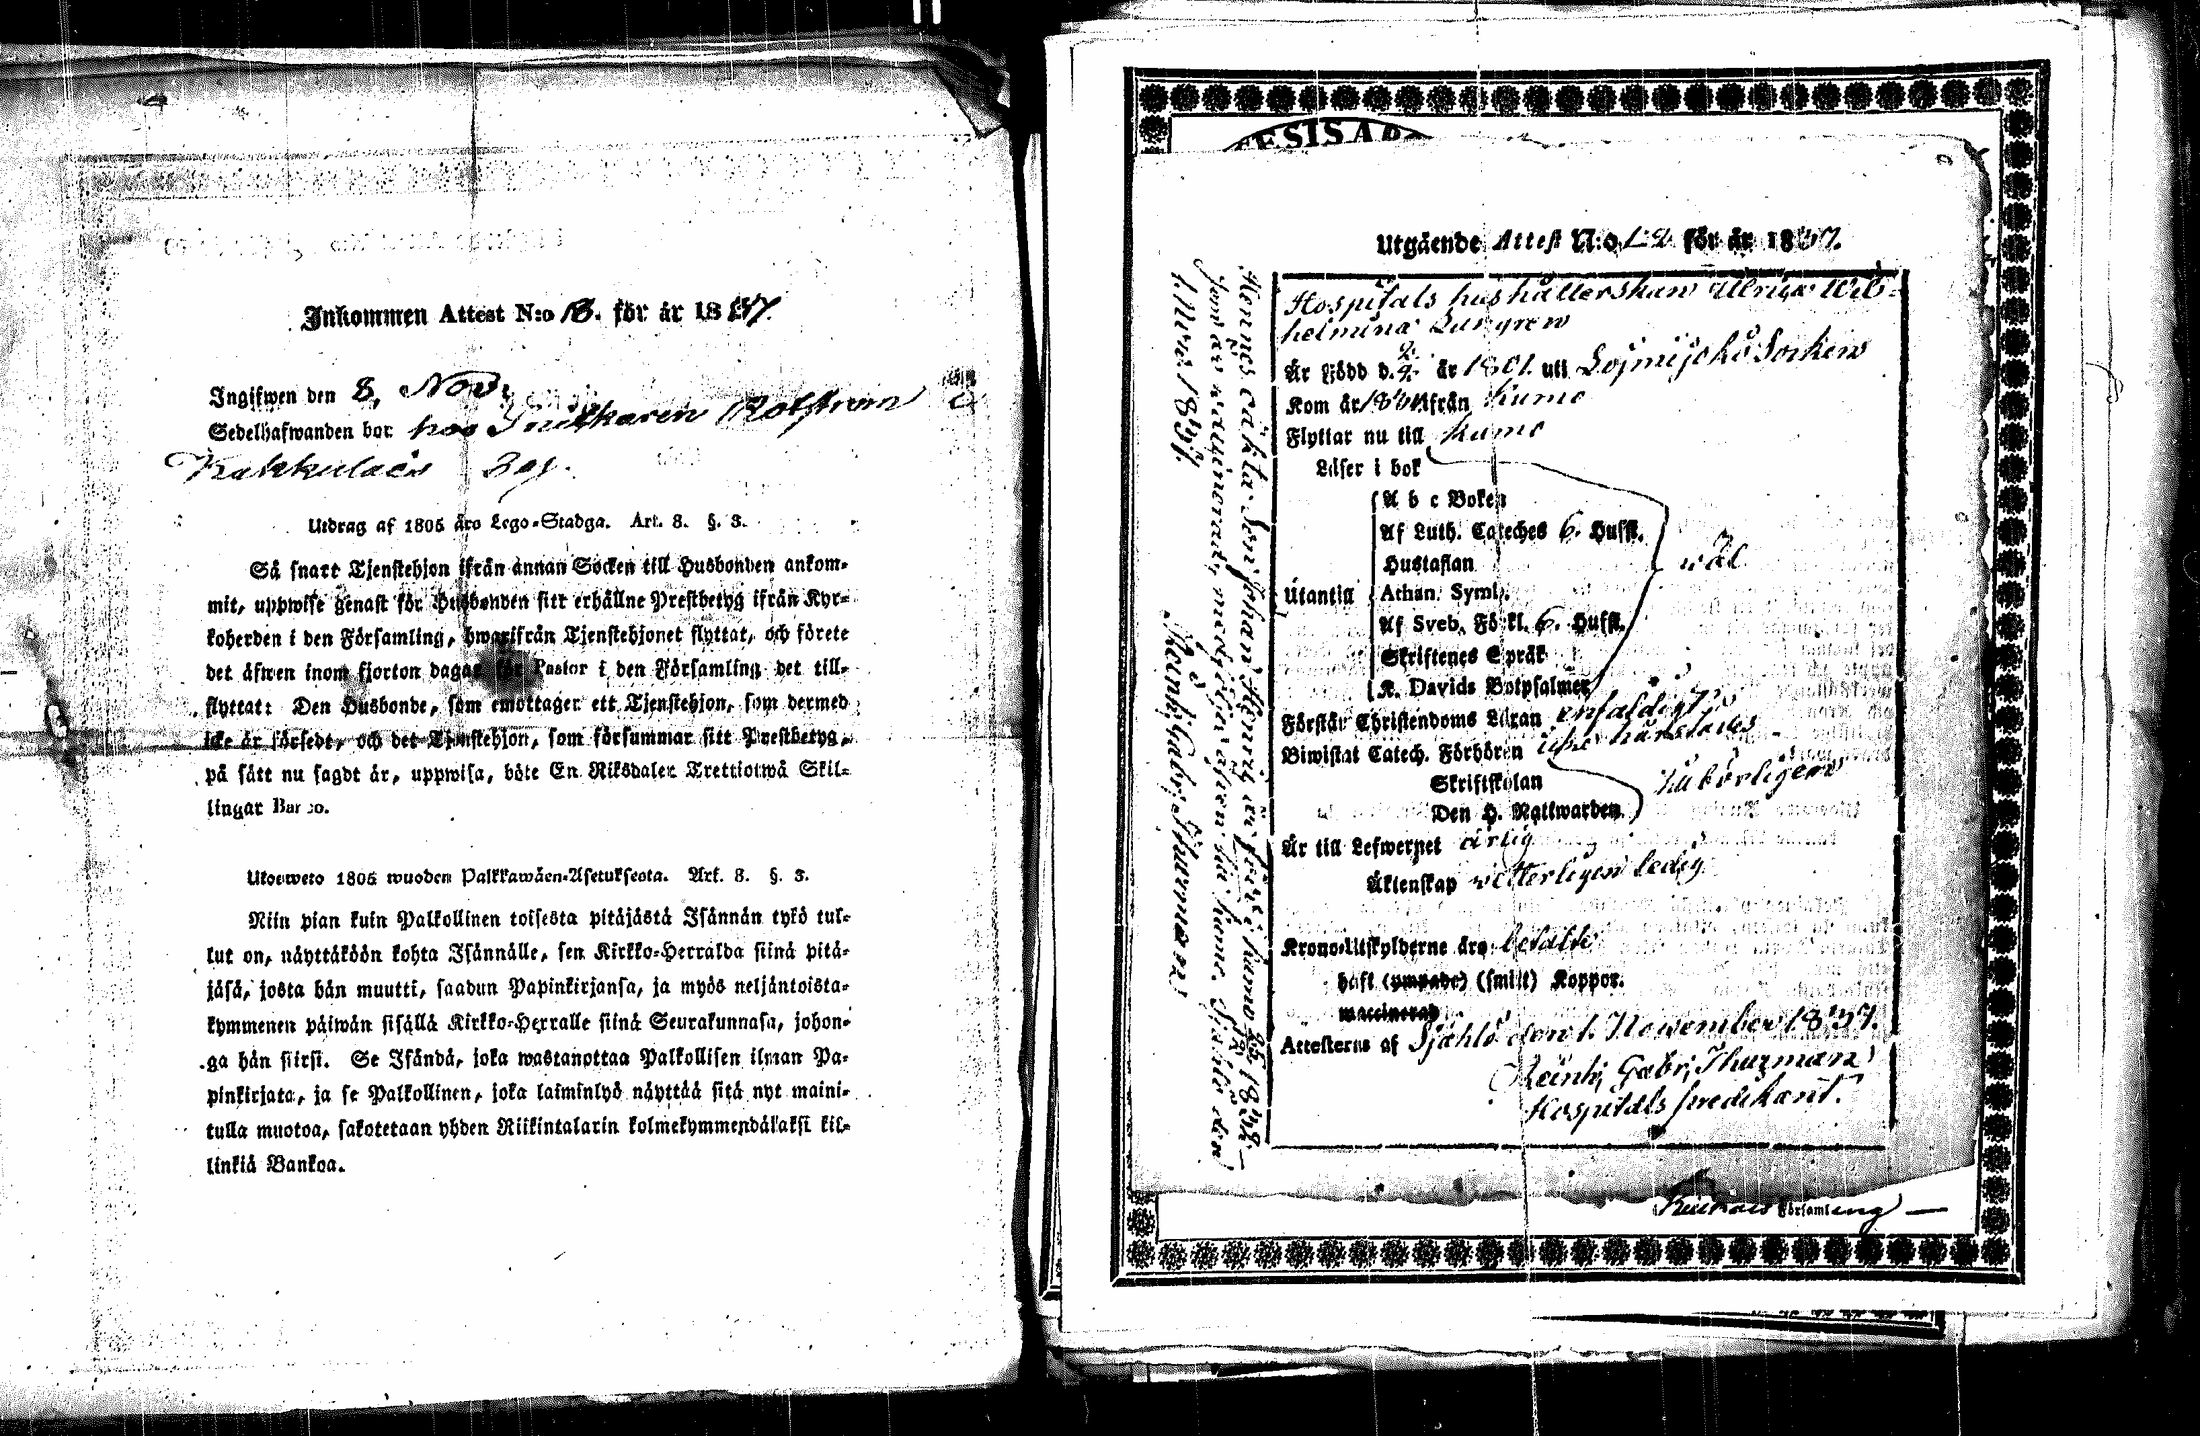 Inkommen Attest N:o 13. för år 1837.
Ingifwen den 8, Nov:
Sedelhafwanden bor hos Snickaren Rolfström
Kakkulais 3 qv.
Utdrag af 1805 års Lego-Stadga. Art. 8. §. 3.
Så snart Tjenstehjon ifrån annan Socken till Husbonden ankom-
mit, uppwise genast för Husbonden sitt erhållne Prestbetyg ifrån Kyr-
koherden i den Församling, hwarifrån Tjenstehjonet flyttat, och förete
det äfwen inom fjorton dagar för Pastor i den Församling det till-
flyttat: Den Husbonde, som emottager ett Tjenstehjon, som dermed
icke är försedt, och det Tjenstehjon, som försummar sitt Prestbetyg,
på sätt nu sagdt är, uppwisa, böte En Riksdaler Trettiotwå Skil-
lingar Banco.
Ulosweto 1805 wuoden Palkkawäen-Asetuksesta. Art. 8. §. 3.
Niin pian kuin Palkollinen toisesta pitäjästä Isännän tykö tul-
lut on, näyttäköön kohta Isännälle, sen Kirkko-Herralda siinä pitä-
jäsä, josta hän muutti, saadun Papinkirjansa, ja myös neljäntoista-
kymmenen päiwän sisällä Kirkko-Herralle siinä Seurakunnasa, johon-
ga hän siirsi. Se Isändä, joka wastanottaa Palkollisen ilman Pa-
pinkirjata, ja se Palkollinen, joka laiminlyö näyttää sitä nyt maini-
tulla muotoa, sakotetaan yhden Riikintalarin kolmekymmendäkaksi kil-
linkiä Bankoa.
Utgående Attest N:o 12 för år 1837.
Hospitals hushållerskan Ulrica Wil-
helmina Lungren
Är Född d. år 1801. uti Loimijoki Socken
Kom år ifrån Kumo
Flyttar nu till Kumo
Läser i bok
A b c Boken
Af Luth. Cateches 6. Hufst.
Hustaflan
wäl
Utantill
Athan. Symb.
Af Sveb. Förkl. 6. Hufst.
Skriftenes Språk
K. Davids Botpsalmer
Förstår Christendoms Läran enfaldigt
Biwistat Catech. Förhören icke härstädes
Skriftskolan
tilbörligen
Den H. Nattwarden
Är till Lefwernet ärlig
Äktenskap vetterligen ledig
Krono-Utskylderne äro betalte
haft (ympade) (smitt) Koppor.
waccinerad
Attesteras af Sjählö den 1. November 1837.
Reinh; Gabr; Thurman
Hospitals predikant.
Hennes oäkta Son Johan Henric är född i Kumo 1832
Sjählö den
1. Nov. 1837.
Reinh; Gabr; Thurman
Församling